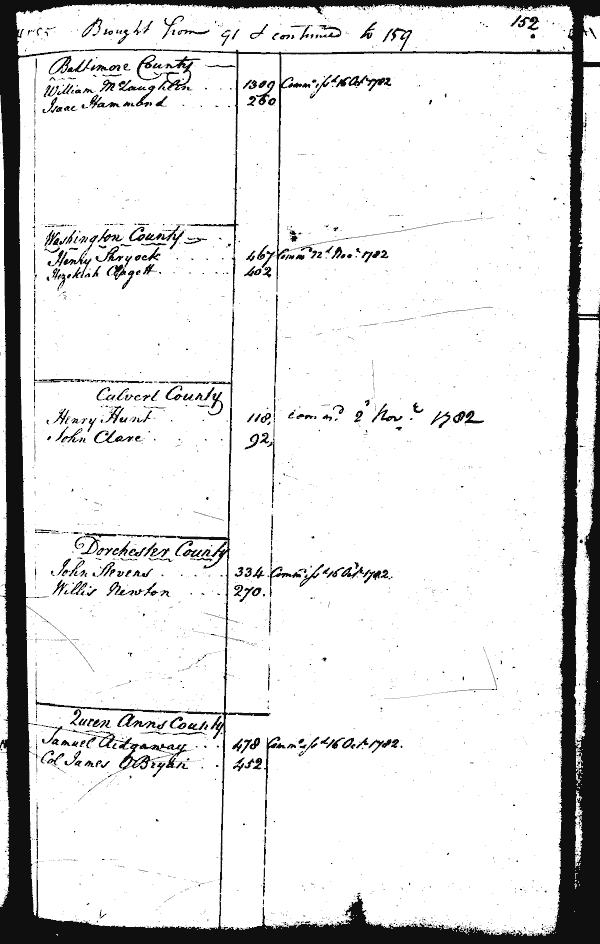 Brought from 91 & continued to 159
152
Baltimore County
William McLaughlin 1309 Commn issd 16 Octr 1782
Isaac Hammond 260
Washington County
Henry Shryock 467 Commd 2d Novr 1782
Hezekiah Clagett 402
Calvert County
Henry Hunt 118, comnd 2d Novr 1782
John Clare 92,
Dorchester County
John Stevens 334 Commn issd 16 Octr 1782.
Willis Newton 270.
Queen Anns County
Samuel Ridgaway 478 Commn issd 16 Octr 1782.
Col James OBryan 452